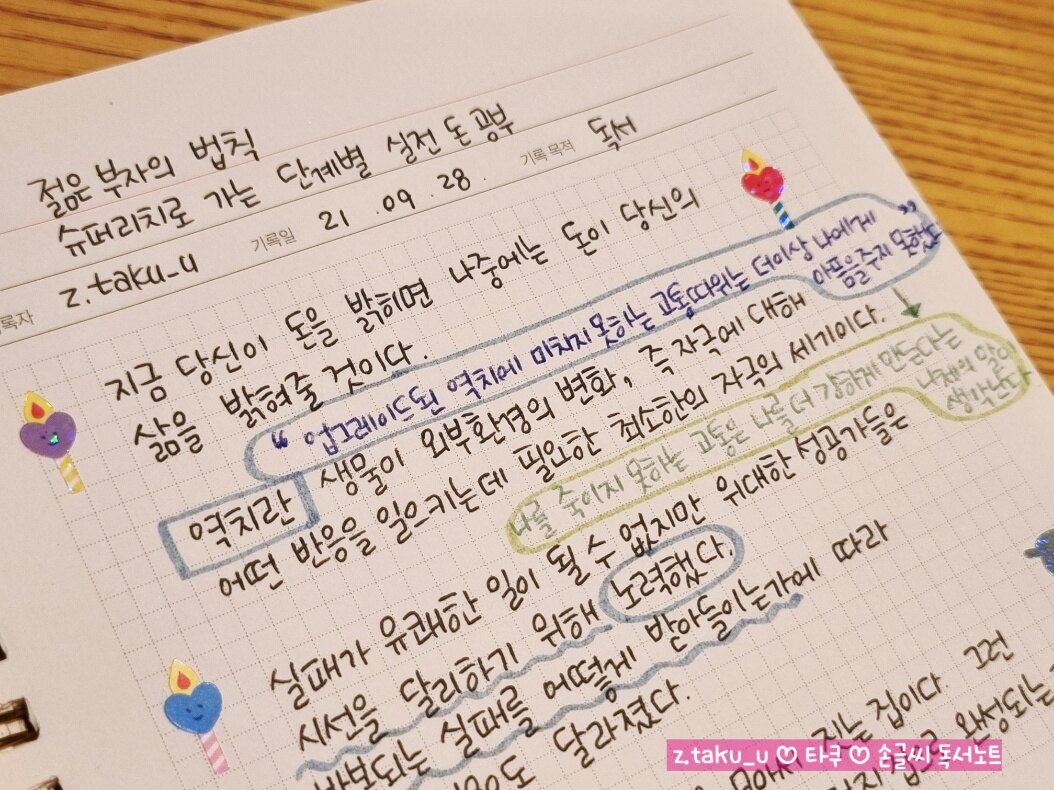 젊은 부자의 법칙
슈퍼리치로 가는 단계별 실전 돈 공부
록자 z.taku_u 기록일 21 .09 .28. 기록 목적 독서
지금 당신이 돈을 밝히면 나중에는 돈이 당신의
삶을 밝혀줄 것이다.
“ 업그레이드된 역치에 미치지 못하는 고통따위는 더이상 나에게
아픔을주지 못했다 ”
역치란 생물이 외부환경의 변화, 즉 자극에 대해
어떤 반응을 일으키는데 필요한 최소한의 자극의 세기이다.
나를 죽이지 못하는 고통은 나를 더 강하게 만든다는
니체의 말이
생각난다
실패가 유쾌한 일이 될 수 없지만 위대한 성공가들은
시선을 달리하기 위해 노력했다.
반복되는 실패를 어떻게 받아들이는가에 따라
달라졌다.
짓는 집이다 그런
완성되는
z.taku_u ♡ 타쿠 ♡ 손글씨 독서노트